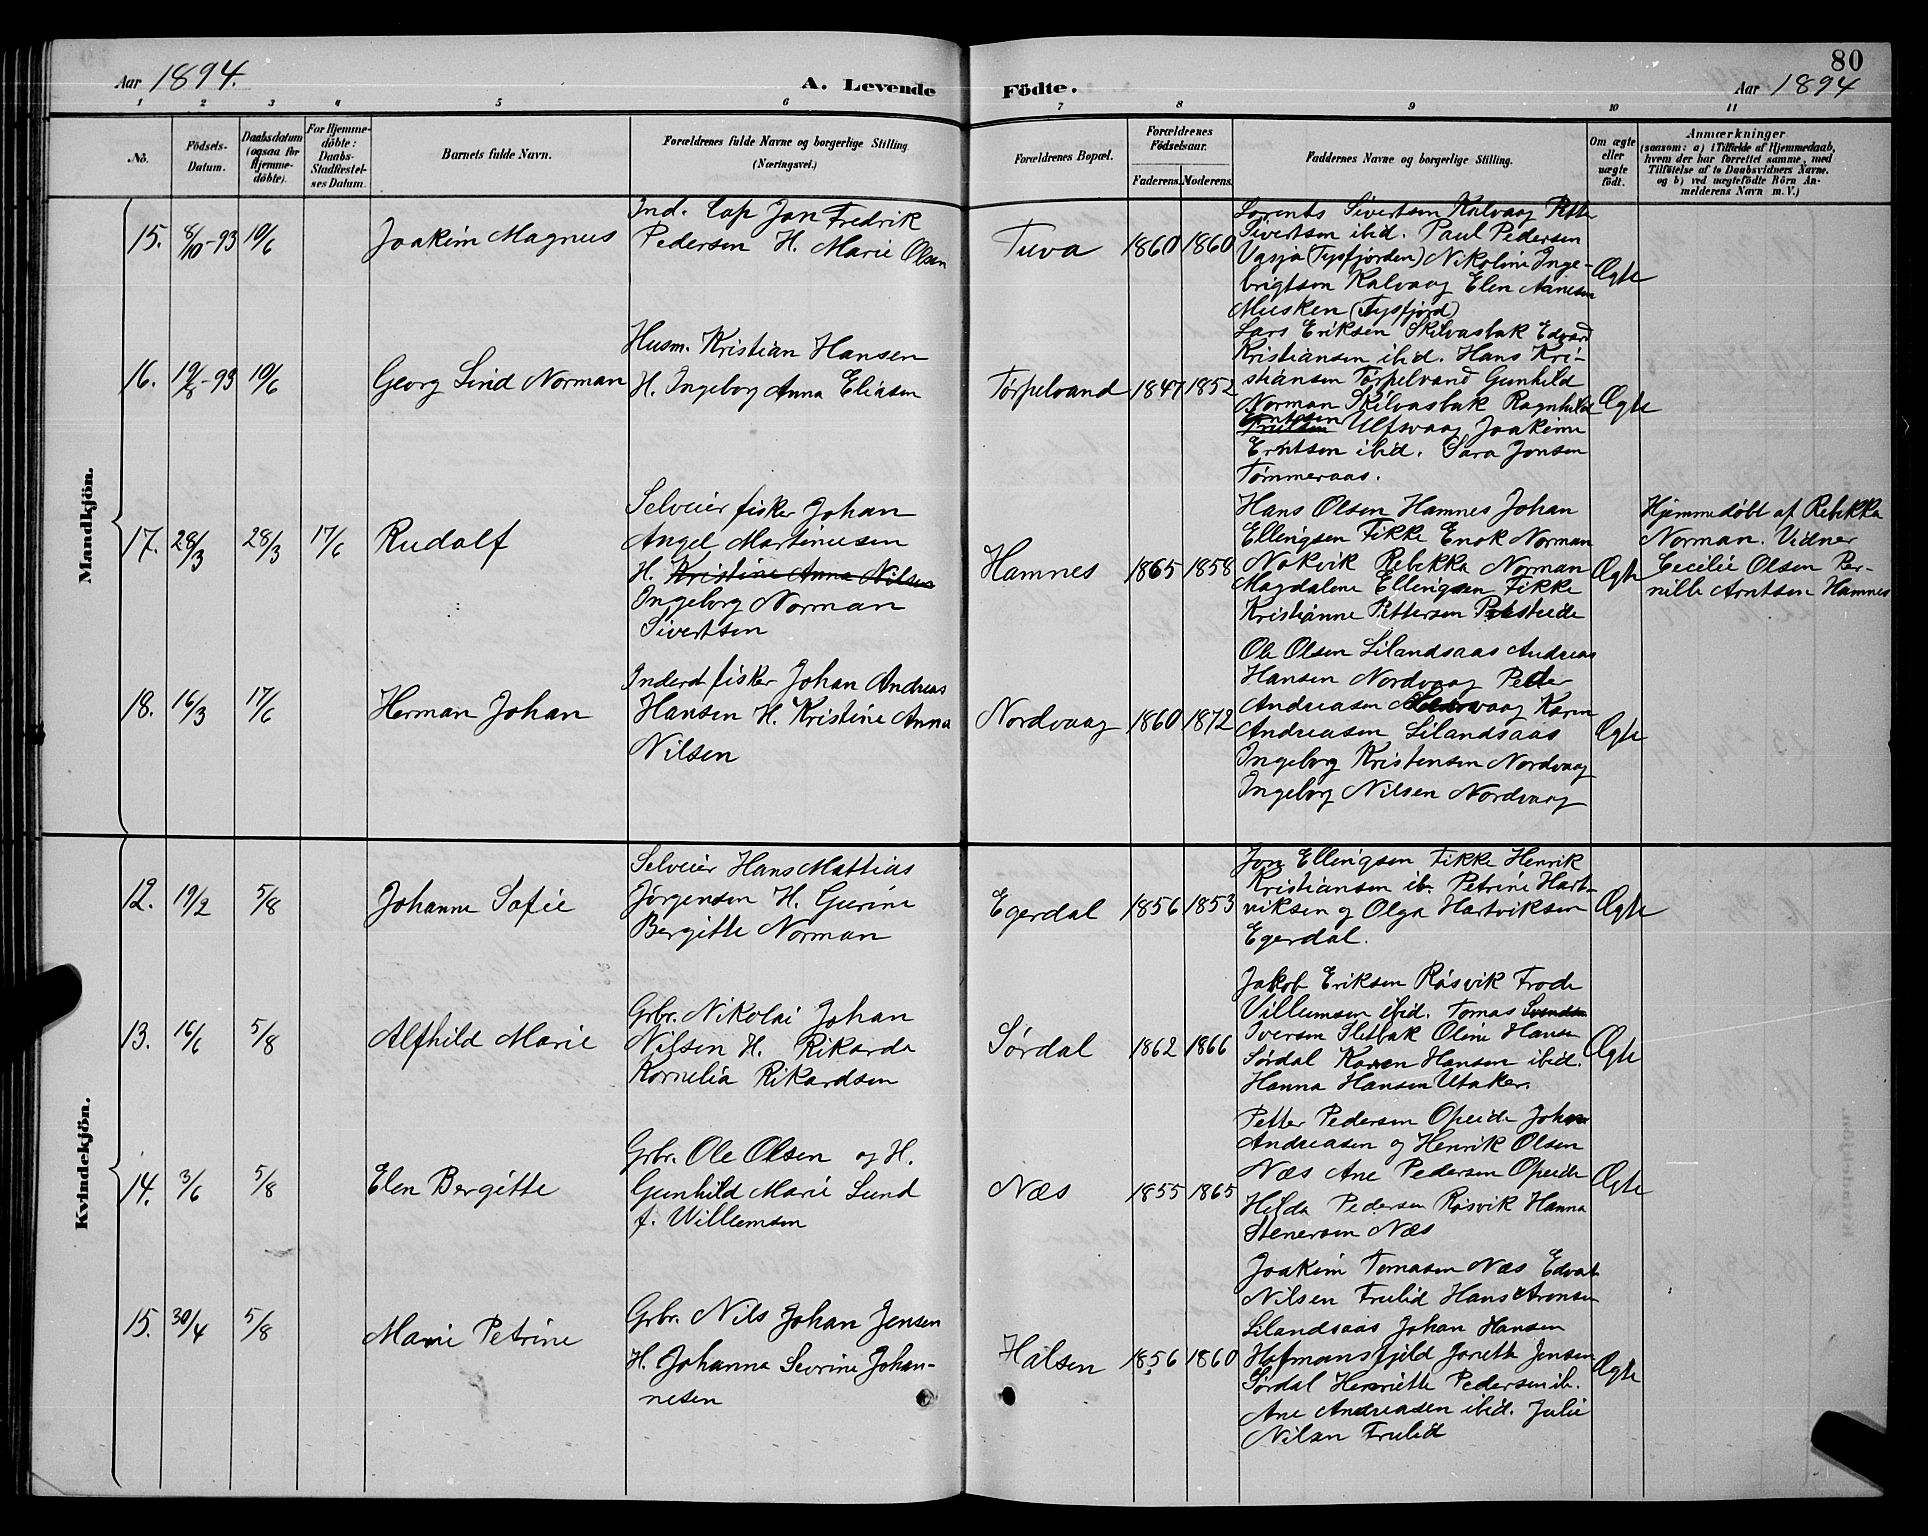 80
Aar 1894.
A. Levende Födte.
Aar 1894
1 2 3 4 5 6 7 8 9 10 11
No.
Födsels-Datum.
Daabsdatum (ogsaa for Hjemme-döbte).
For Hjemme-döbte: Daabs-Stadfæstel-ses Datum.
Barnets fulde Navn.
Forældrenes fulde Navne og borgerlige Stilling (Næringsvei.)
Forældrenes Bopæl.
Forældrenes Födselsaar.
Faderens. Moderens.
Faddernes Navne og borgerlige Stilling.
Om ægte eller uægte födt.
Anmærkninger
(saasom: a) i Tilfælde af Hjemmedaab,
hvem der har forrettet samme, med
Tilföielse af to Daabsvidners Navne.
og b) ved uægtefödte Börn An-
melderens Navn m. V.)
Mandkjön.
15. 8/10-93 10/6 Joakim Magnus
Ind. Lap Jon Fredrik
Pedersen H. Marie Olsen
Tuva 1860 1860
Lorents Sivertsen Kalvaag Petter
Sivertsen ibid. Paul Pedersen
Vasja (Tysfjorden) Nikoline Inge-
brigtsen Kalvaag Elen Aanesen
Musken (Tysfjord)
Ægte
16. 19/8-93 10/6 Georg Lind Norman
Husm. Kristian Hansen
H. Ingeborg Anna Eliasen
Tørpelvand 1847 1852
Lars Eriksen Skilvasbak Edvard
Kristiansen ibid. Hans Kri-
stiansen Tørpelvand Gunhild
Norman Skilvasbak Ragnhild
Erntsen Ulfsvaag Joakime
Erntsen ibid. Sara Jonsen
Tømmeraas.
Ægte
17. 28/3 28/3 17/6 Rudolf
Selveier fisker Johan
Angel Martinusen
H. Kristine Anna Nilsen
Ingeborg Norman
Sivertsen
Hamnes 1865 1858
Hans Olsen Hamnes Johan
Ellingsen Fikke Enok Norman
Nokvik Rebekka Norman
Magdalene Ellingsen Fikke
Kristianne Pettersen Presteide
Ægte
Hjemmedøbt af Rebekka
Norman. Vidner
Cecilie Olsen Per-
nille Arntsen Hamnes
18. 16/3 17/6 Herman Johan
Inderst fisker Johan Andreas
Hansen H. Kristine Anna
Nilsen
Nordvaag 1860 1872
Ole Olsen Lilandsaas Andreas
Hansen Nordvaag Peder
Andreasen Karen
Andreasen Lilandsaas
Ingeborg Kristensen Nordvaag
Ingeborg Nilsen Nordvaag
Ægte
Kvindekjön.
12. 19/2 5/8 Johanne Sofie
Selveier Hans Mattias
Jørgensen H. Gurine
Bergitte Norman
Egerdal 1856 1853
Jon Ellingsen Fikke Henrik
Kristiansen ib. Petrine Hart-
viksen og Olga Hartviksen
Egerdal.
Ægte
13. 16/6 5/8 Alfhild Marie
Grbr. Nikolai Johan
Nilsen H. Rikarda
Kornelia Rikardsen
Sørdal 1862 1866
Jakob Eriksen Røsvik Frode
Villumsen ibid. Tomas Svendsen
Iversen Sletbak Oline Hansen
Sørdal Karen Hansen ibid.
Hanna Hansen Utaker.
Ægte
14. 3/6 5/8 Elen Bergitte
Grbr. Ole Olsen og H.
Gunhild Marie Lund
f. Willumsen
Næs 1855 1865
Petter Pedersen Opeide Johan
Andreasen og Henrik Olsen
Næs Ane Pedersen Opeide
Hilda Pedersen Røsvik Hanna
Stenersen Næs
Ægte
15. 30/4 5/8 Marie Petrine
Grbr. Nils Johan Jensen
H. Johanna Sevrine Johan-
nesen
Halsen 1856 1860
Joakim Tomasen Næs Edvart
Nilsen Frulid Hans Aronsen
Lilandsaas Johan Hansen
Hofmansfjeld Jonette Jensen
Sørdal Henriette Pedersen ib.
Ane Andreasen ibid. Julie
Nilsen Frulid
Ægte